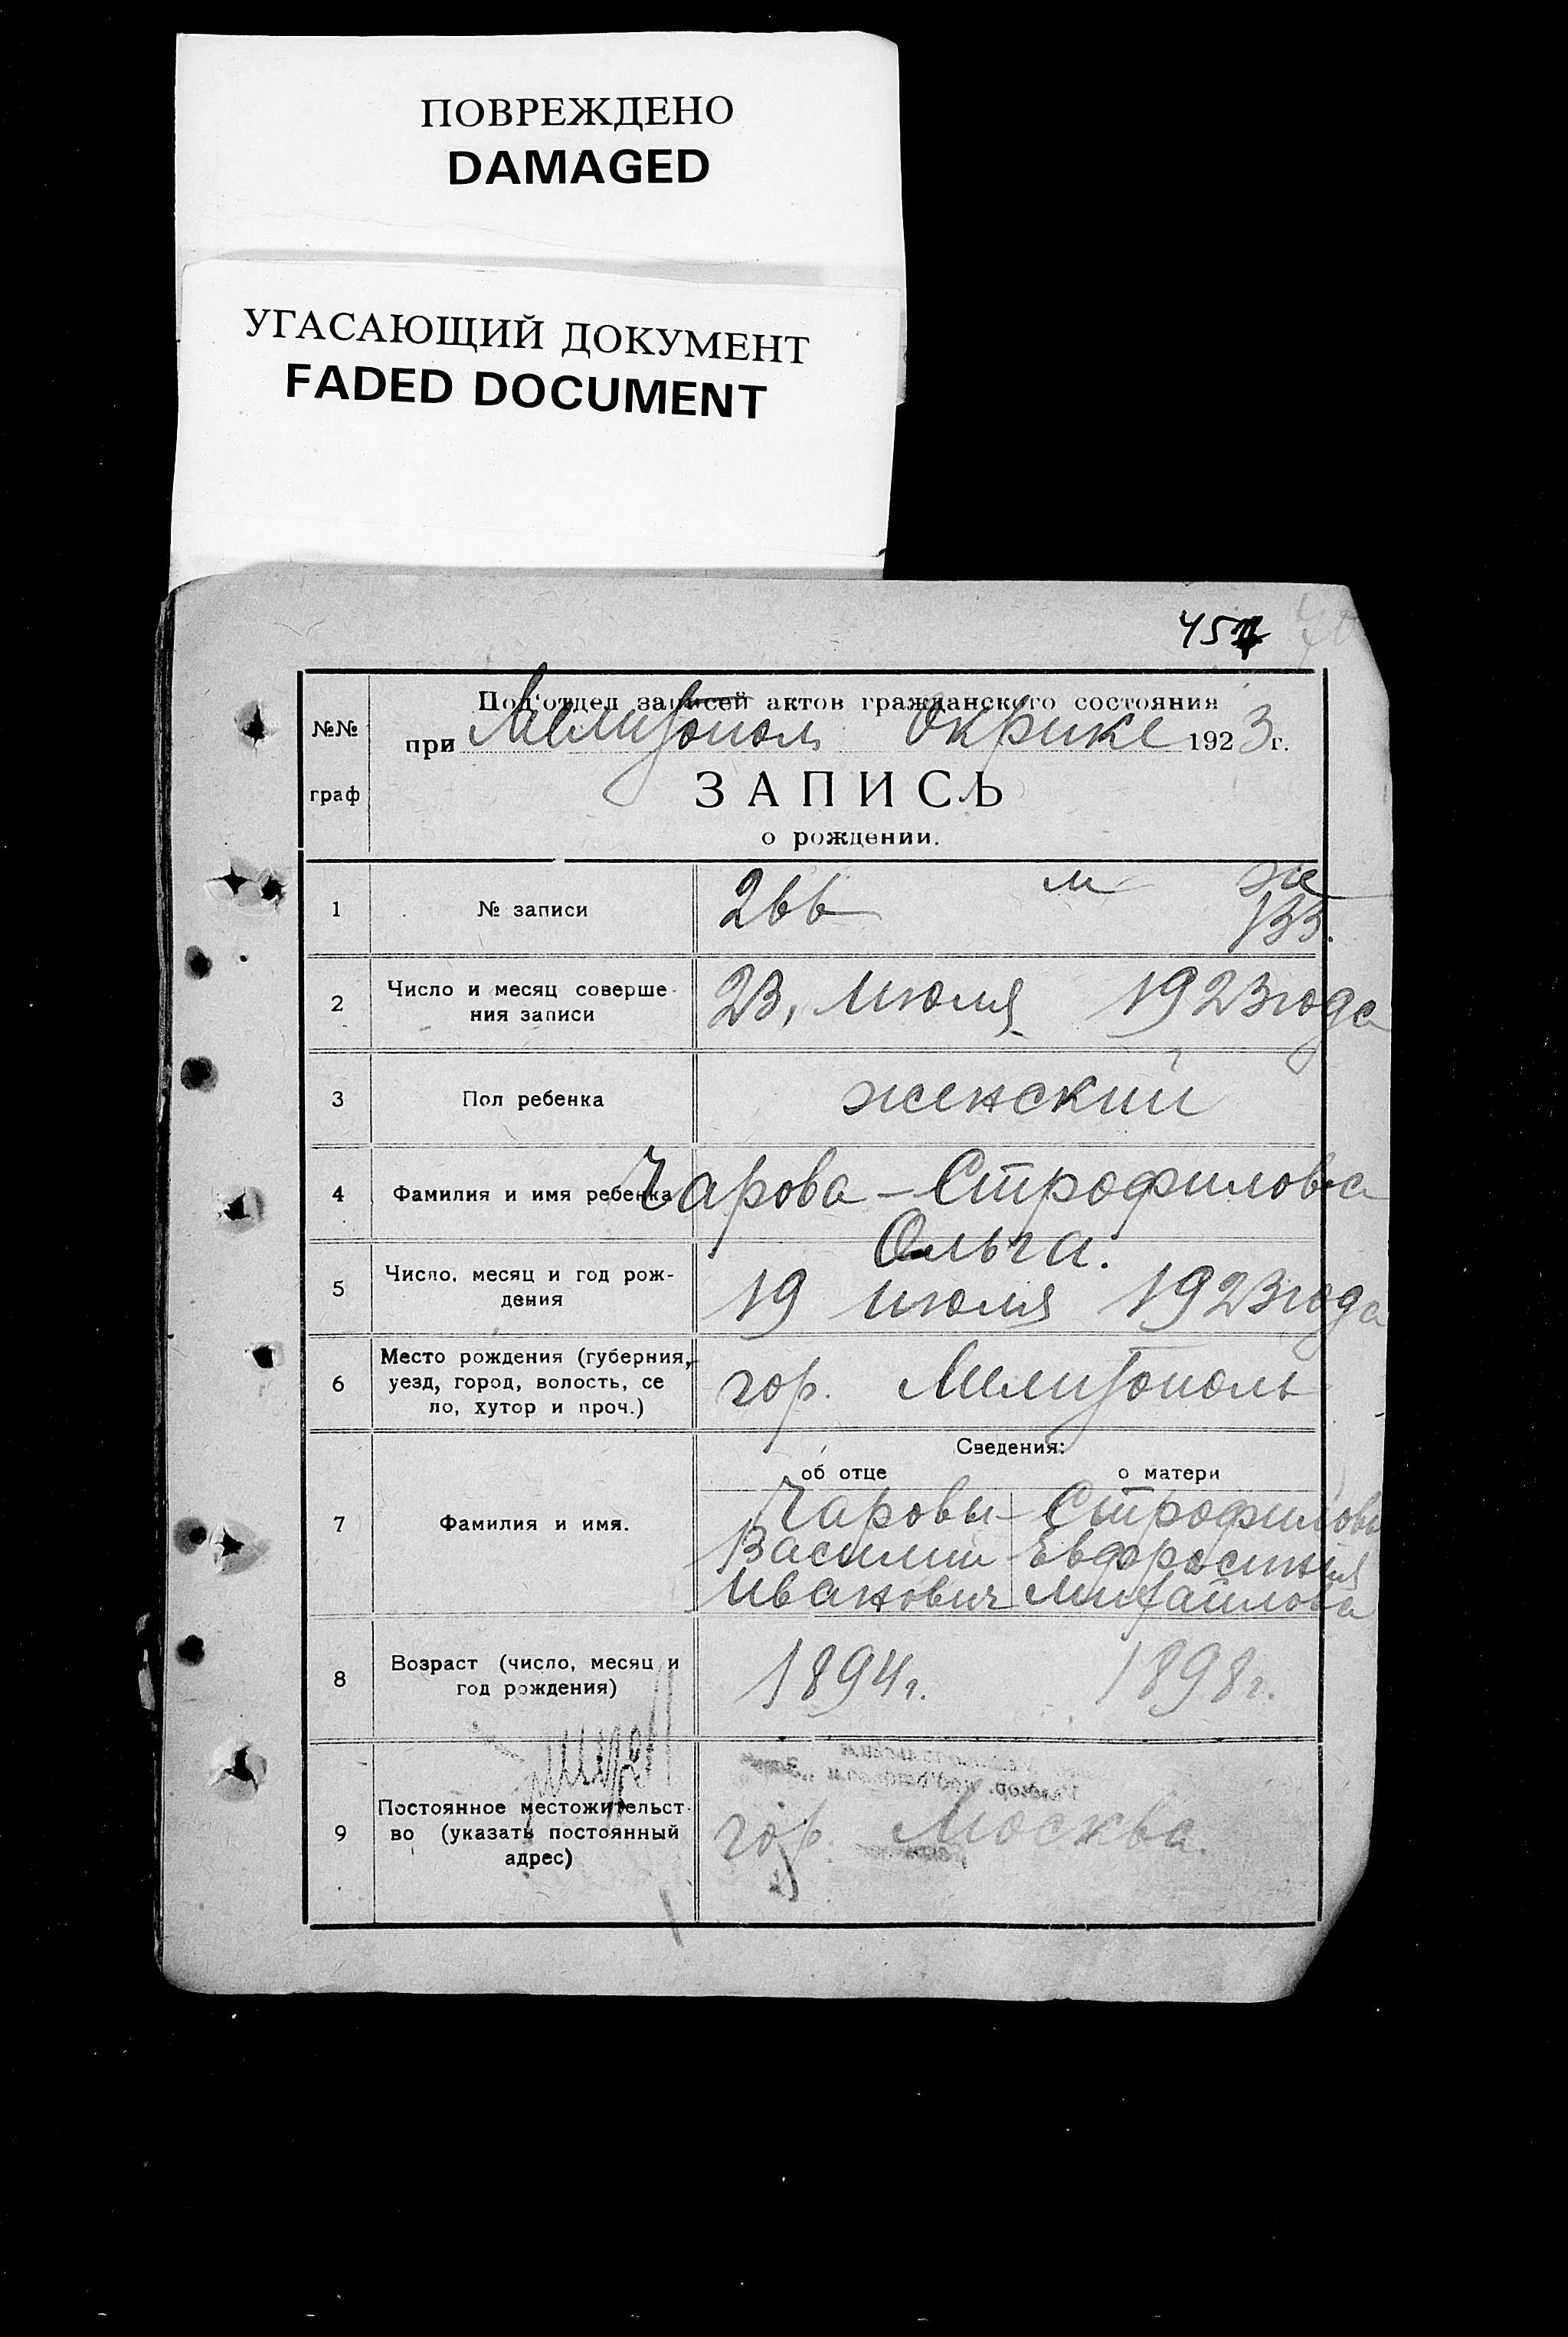 ПОВРЕЖДЕНО
DAMAGED
УГАСАЮЩИЙ ДОКУМЕНТ
FADED DOCUMENT
451
№№
граф
Под'отдел записей актов гражданского состояния
при Мелитопол Окрике 1923 г.
ЗАПИСЬ
о рождении.
м ж
1 № записи 266 133.
2 Число и месяц соверше-
ния записи
23, июля 1923 года
3 Пол ребенка женский
4 Фамилия и имя ребенка Чарова - Строфилова
Ольга.
5 Число, месяц и год рож-
дения
19 июля 1923 года
6 Место рождения (губерния,
уезд, город, волость, се
ло, хутор и проч.)
гор. Мелитополь
Сведения:
об отце о матери
7 Фамилия и имя. Чаровы - Строфиловы
Василий Евфросиния
Иванович Михайлова
8 Возраст (число, месяц и
год рождения)
1894 г. 1898 г.
9 Постоянное местожительст-
во (указать постоянный
адрес)
гор. Москва.